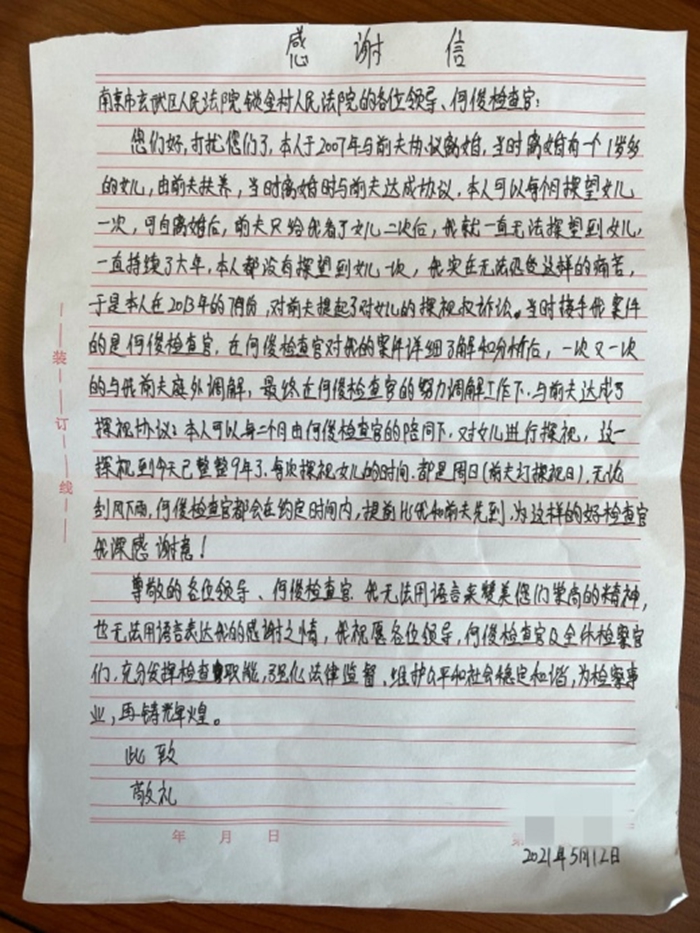 感谢信
南京市玄武区人民法院锁金村人民法院的各位领导、何俊检查官:
您们好,打扰您们了,本人于2007年与前夫协议离婚,当时离婚有一个1岁多
的女儿,由前夫扶养,当时离婚时与前夫达成协议,本人可以每个月探望女儿
一次,可自离婚后,前夫只给我看了女儿二次后,我就一直无法探望到女儿,
一直持续了六年,本人都没有探望到女儿一次,我实在无法忍受这样的痛苦,
于是本人在2013年的7月份,对前夫提起了对女儿的探视权诉讼。当时接手我案件
的是何俊检查官,在何俊检查官对我的案件详细了解和分析后,一次又一次
的与我前夫庭外调解,最终在何俊检查官的努力调解工作下,与前夫达成了
探视协议:本人可以每二个月由何俊检查官的陪同下,对女儿进行探视,这一
探视到今天已整整9年了,每次探视女儿的时间,都是周日(前夫订探视日),无论
刮风下雨,何俊检查官都会在约定时间内,提前比我和前夫先到,为这样的好检查官
我深感谢意!
尊敬的各位领导、何俊检查官,我无法用语言来赞美您们崇高的精神,
也无法用语言表达我的感谢之情,我祝愿各位领导,何俊检查官及全体检察官
们,充分发挥检查职能,强化法律监督、维护公平和社会稳定和谐,为检察事
业,再铸辉煌。
此致
敬礼
年 月 日 第
2021年5月12日
装
订
线